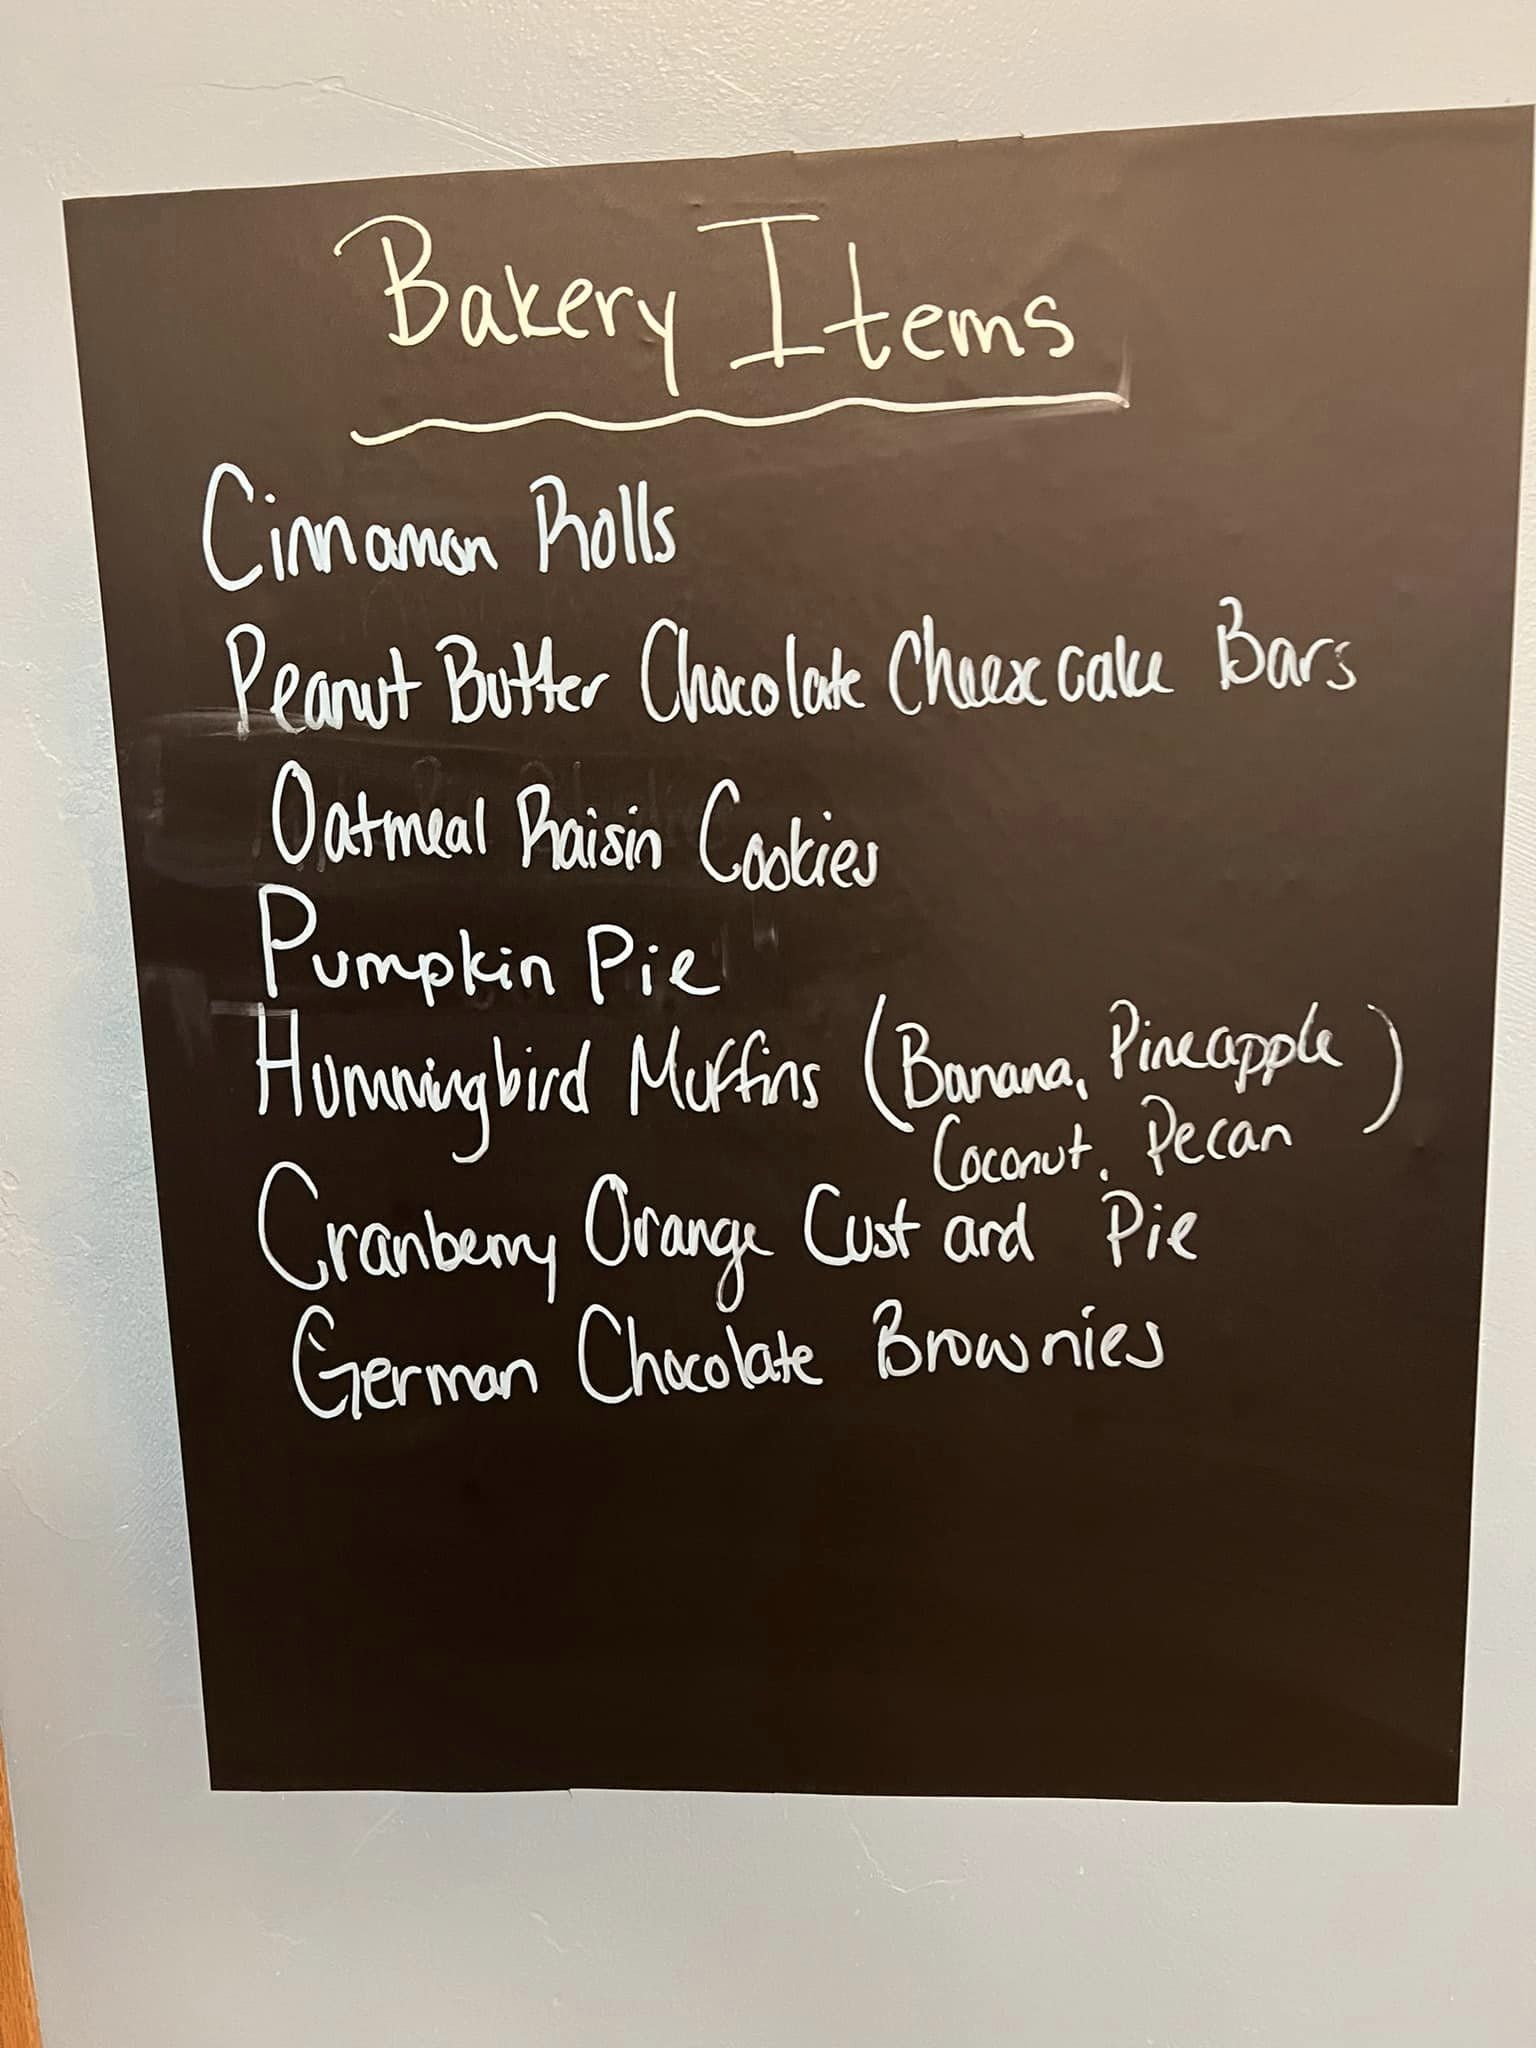 Bakery Items
Cinnamon Rolls
Peanut Butter Chocolate Cheesecake Bars
Oatmeal Raisin Cookies
Pumpkin Pie
Hummingbird Muffins (Banana, Pineapple
Coconut, Pecan)
Cranberry Orange Custard Pie
German Chocolate Brownies